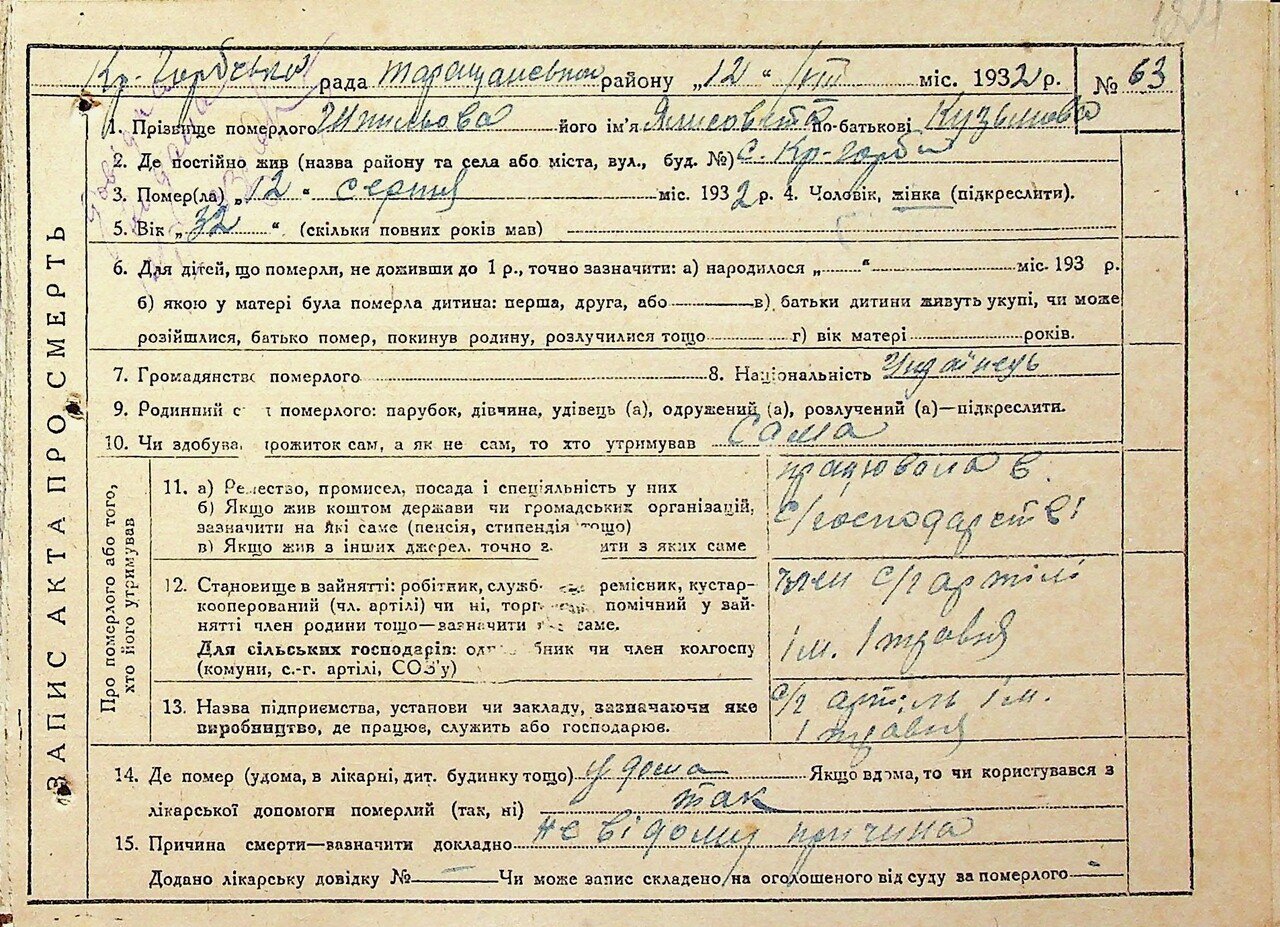 ЗАПИС АКТА ПРО СМЕРТЬ
Кр-Горбська рада Таращанський району „12“ /VIII міс. 1932 р. № 63
1. Прізвище померлого його ім'я Ялисовета по-батькові Кузьмовна
2. Де постійно жив (назва району та села або міста, вул., буд. №) с. Кр-горби
3. Помер(ла) „12“ серпня міс. 1932 р. 4. Чоловік, жінка (підкреслити).
5. Вік „32“ (скільки повних років мав)
6. Для дітей, що померли, не доживши до 1 р., точно зазначити: а) народилося „ “ міс. 193 р.
б) якою у матері була померла дитина: перша, друга, або в) батьки дитини живуть укупі, чи може
розійшлися, батько помер, покинув родину, розлучилися тощо г) вік матері років.
7. Громадянств померлого 8. Національність Українець
9. Родинний с т померлого: парубок, дівчина, удівець (а), одружений (а), розлучений (а)—підкреслити.
10. Чи здобува прожиток сам, а як не сам, то хто утримував Сама
Про померлого або того,
хто його утримував
11. а) Ремество, промисел, посада і спеціяльність у них
б) Якщо жив коштом держави чи громадських організацій,
зазначити на які саме (пенсія, стипендія тощо)
в) Якщо жив з інших джерел, точно з ити з яких саме
працювала в
с/господарстві
12. Становище в зайнятті: робітник, служб ремісник, кустар-
кооперований (чл. артілі) чи ні, торг помічний у зай-
нятті член родини тощо—зазначити саме.
Для сільських господарів: од бник чи член колгоспу
(комуни, с.-г. артілі, СОЗ'у)
член с/г артілі
ім. 1 травня
13. Назва підприємства, установи чи закладу, зазначаючи яке
виробництво, де працює, служить або господарює.
с/г артіль ім.
1 травня
14. Де помер (удома, в лікарні, дит. будинку тощо) у дома Якщо вдома, то чи користувався з
лікарської допомоги померлий (так, ні) так
15. Причина смерти—вазначити докладно не відому причина
Додано лікарську довідку № — Чи може запис складено на оголошеного від суду за померлого —